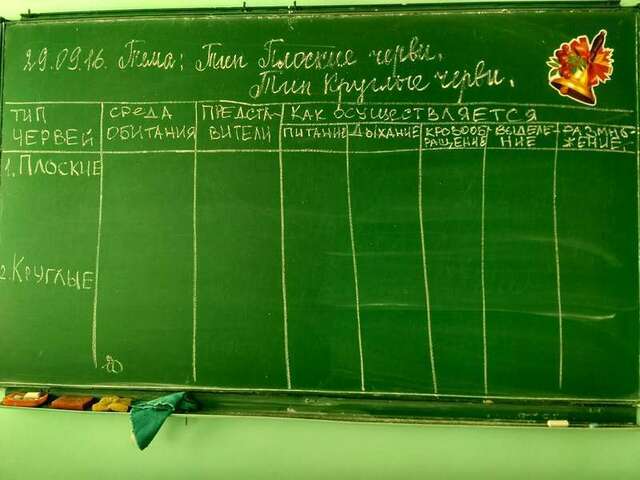 29.09.16. Тема: Тип Плоские черви.
Тип Круглые черви.
ТИП ЧЕРВЕЙ
СРЕДА ОБИТАНИЯ
ПРЕДСТА-
ВИТЕЛИ
КАК ОСУЩЕСТВЛЯЕТСЯ
ПИТАНИЕ
ДЫХАНИЕ
КРОВООБ
РАЩЕНИЕ
ВЫДЕЛЕ-
НИЕ
РАЗМНО-
ЖЕНИЕ
1. ПЛОСКИЕ
2. КРУГЛЫЕ